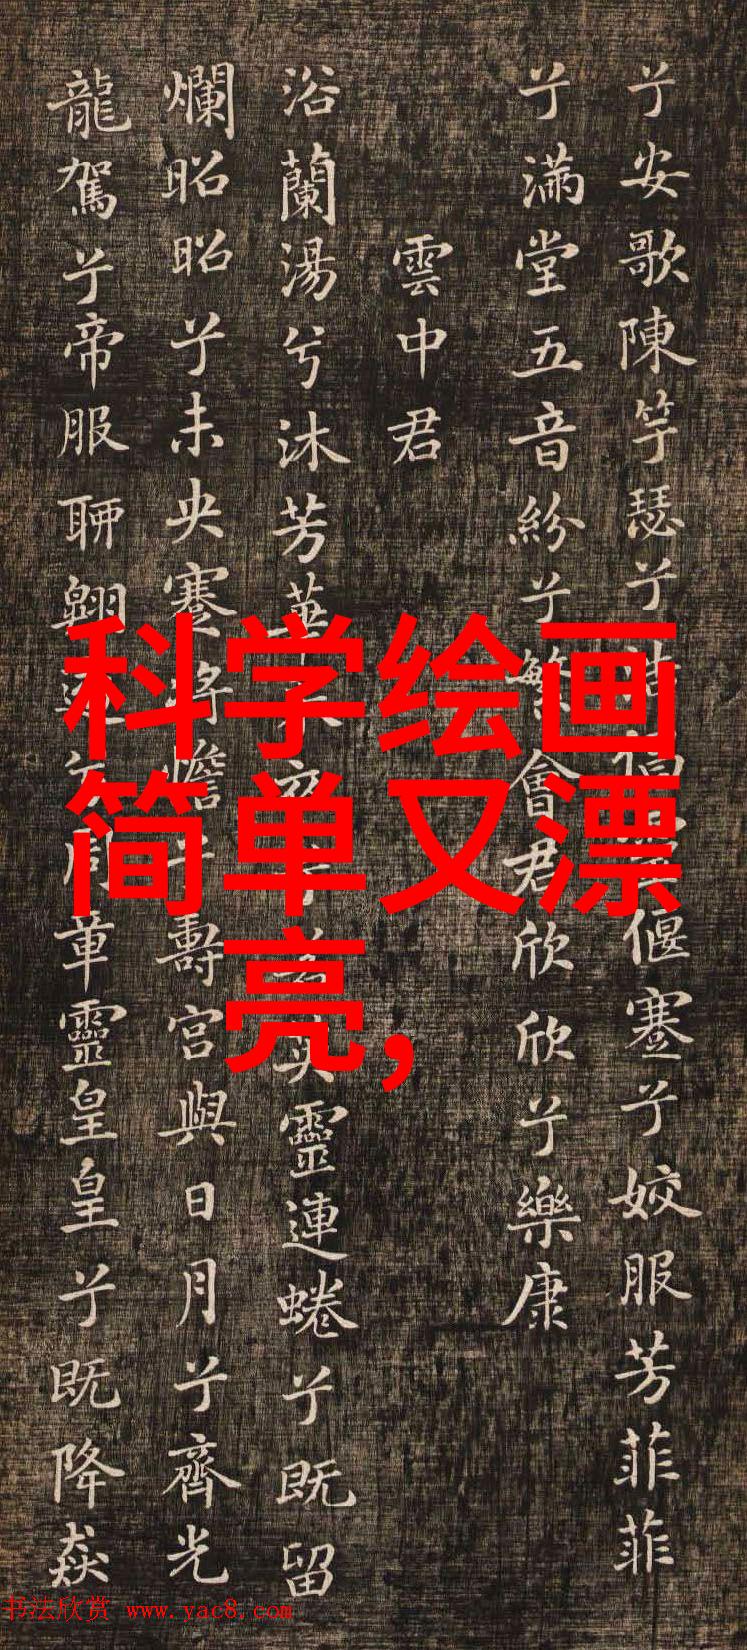 兮安歌陳竽瑟兮浩倡靈偃蹇兮姣服芳菲菲
兮滿堂五音紛兮繁會君欣欣兮樂康
雲中君
浴蘭湯兮沐芳華采衣兮若英靈連蜷兮既留
爛昭昭兮未央蹇將憺兮壽宮與日月兮齊光
龍駕兮帝服聊翱遊兮周章靈皇皇兮既降猋
科学绘画
简单又漂
亮,
书法欣赏 www.yac8.com